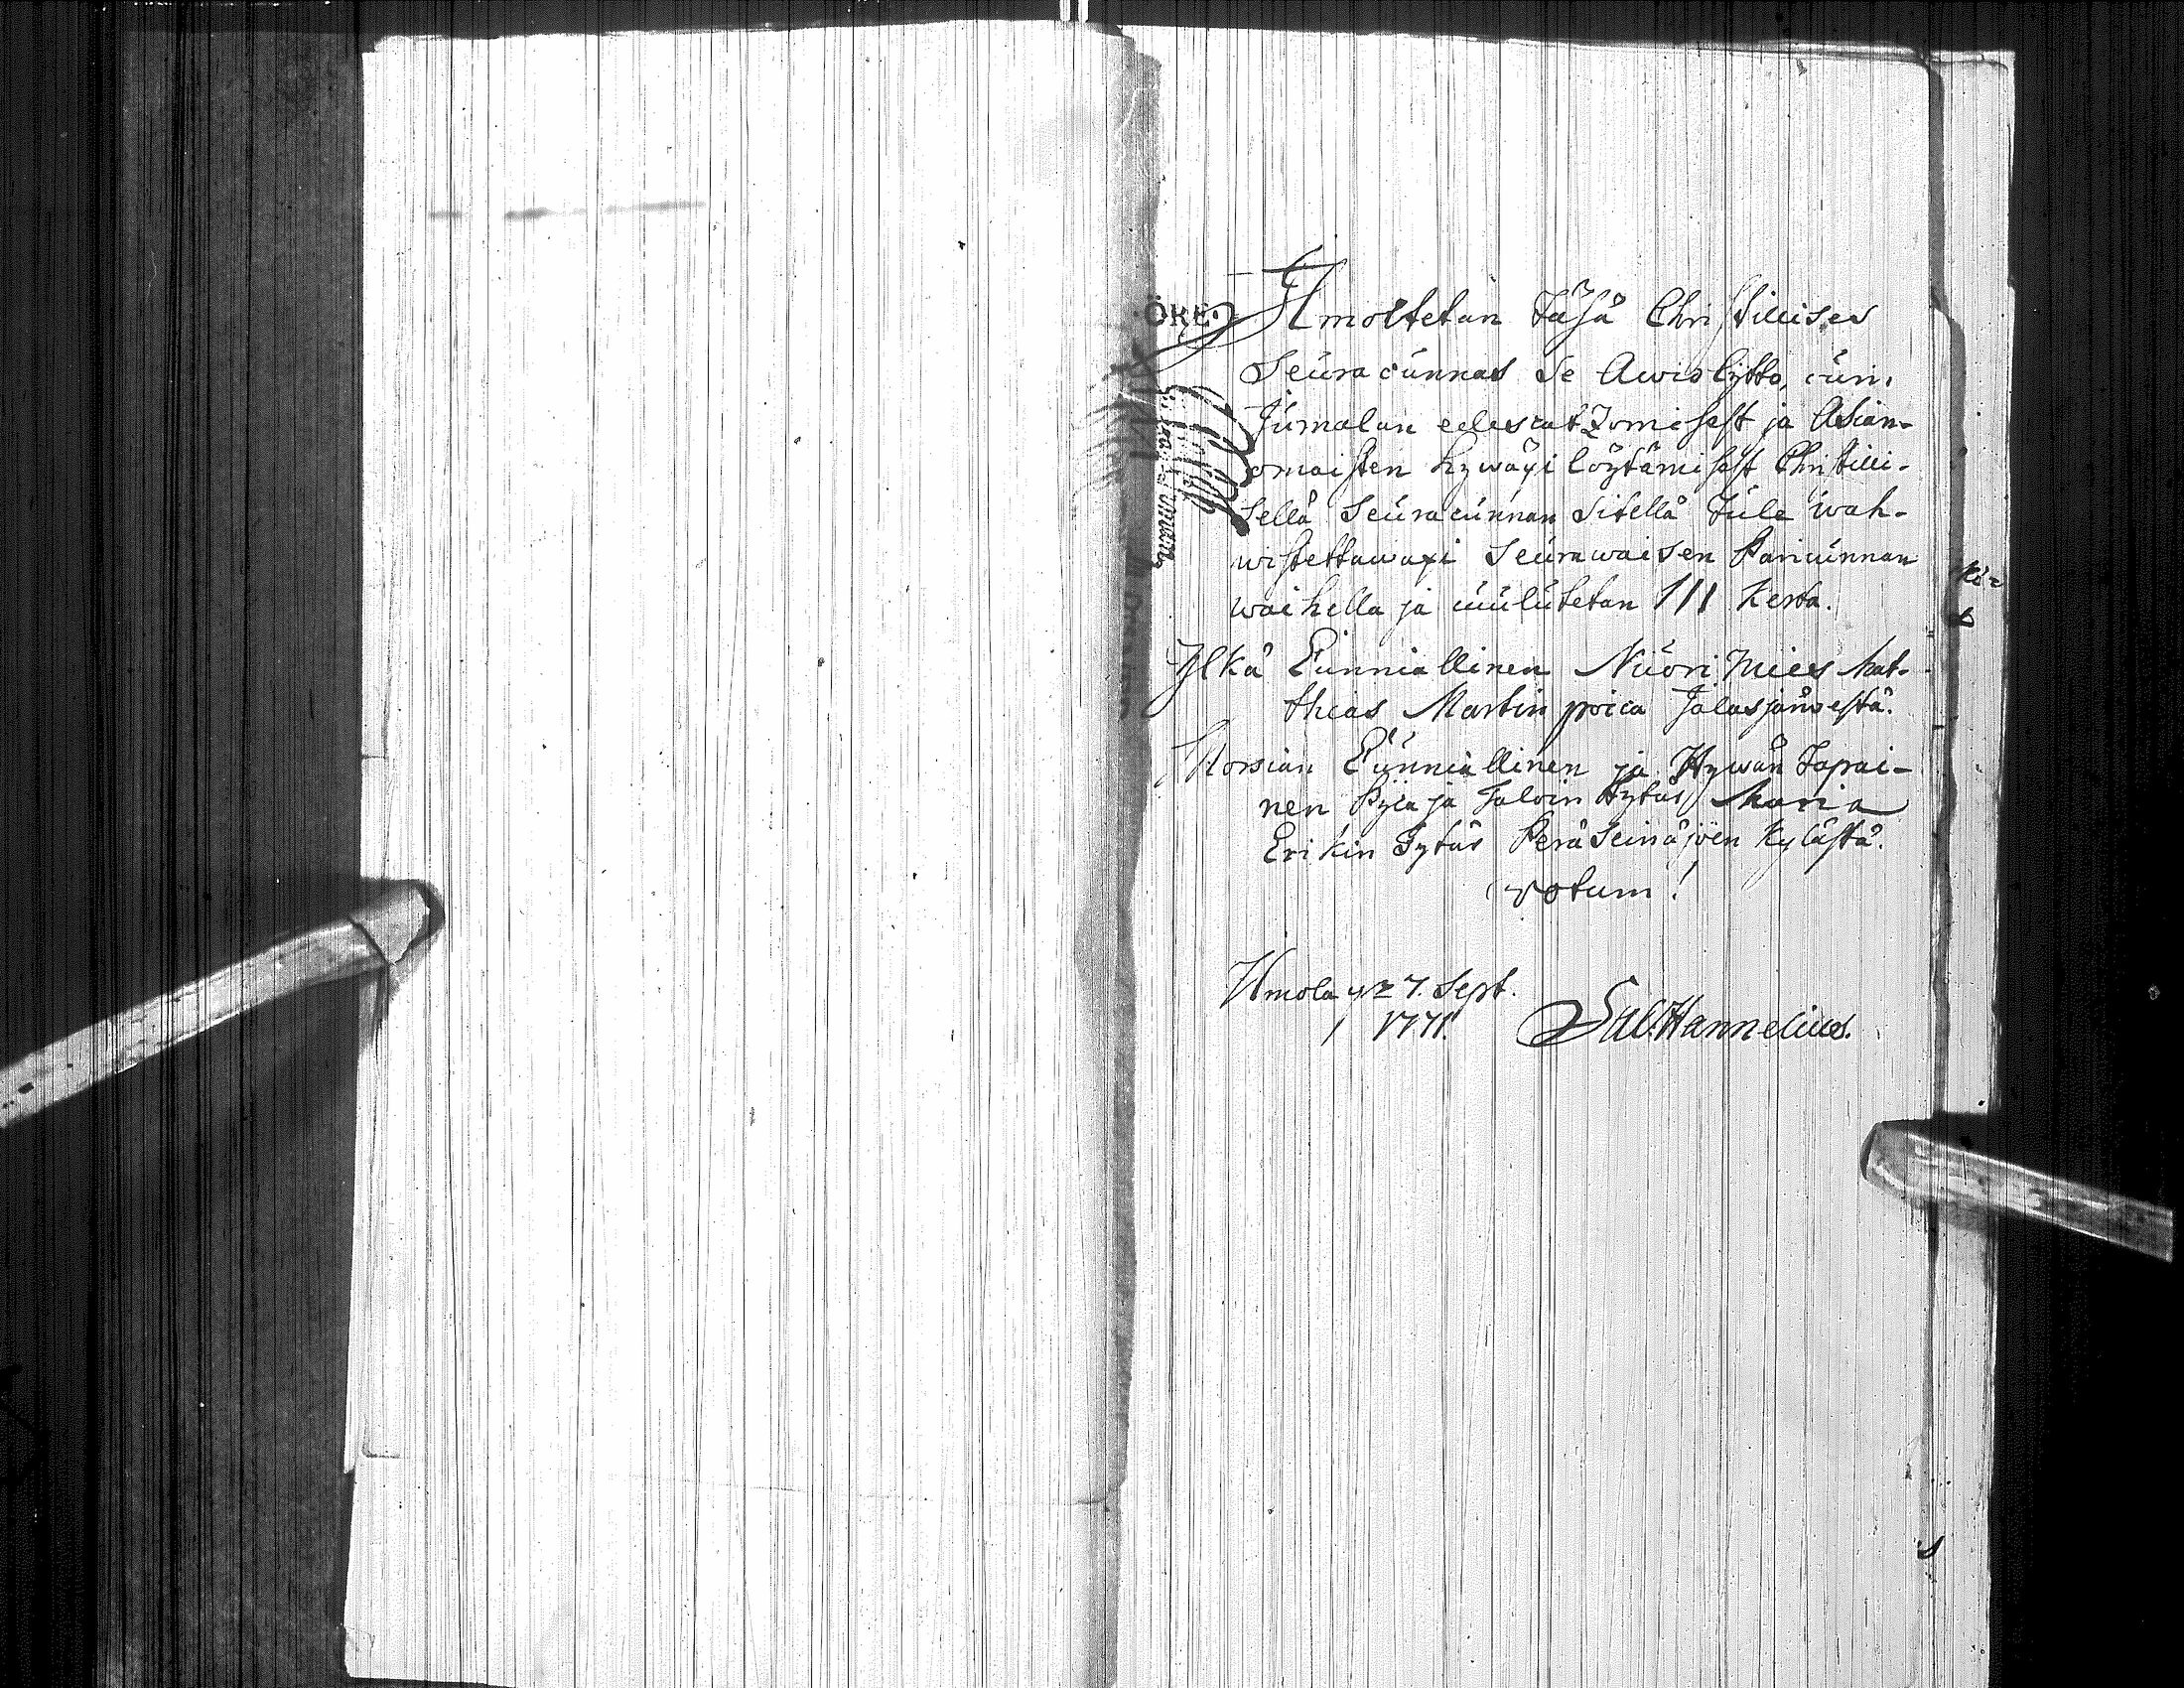 ÖRE.
Ilmoitetan täsä Christillises
Seuracunnas se Awioskytto, cuin
Jumalan edescatzomisest ja Asian-
omaisten hywäxi löytämisest Christilli-
sellä Seuracunnan sitellä tule wah-
wistettawaxi seurawaisen Paricunnan
waihella ja cuulutetan III Kerta.
Ylkä Cunniallinen Nuori Mies Mat-
thias Martin poica Jalasjärwestä.
Morsian Cunniallinen ja Hywän Tapai-
nen Pijca ja Taloin Tytär Maria
Erikin Tytär Peräseinäjoen Kylästä.
votum!
Ilmola 27. Sept.
1771. Sal. Hannelius.